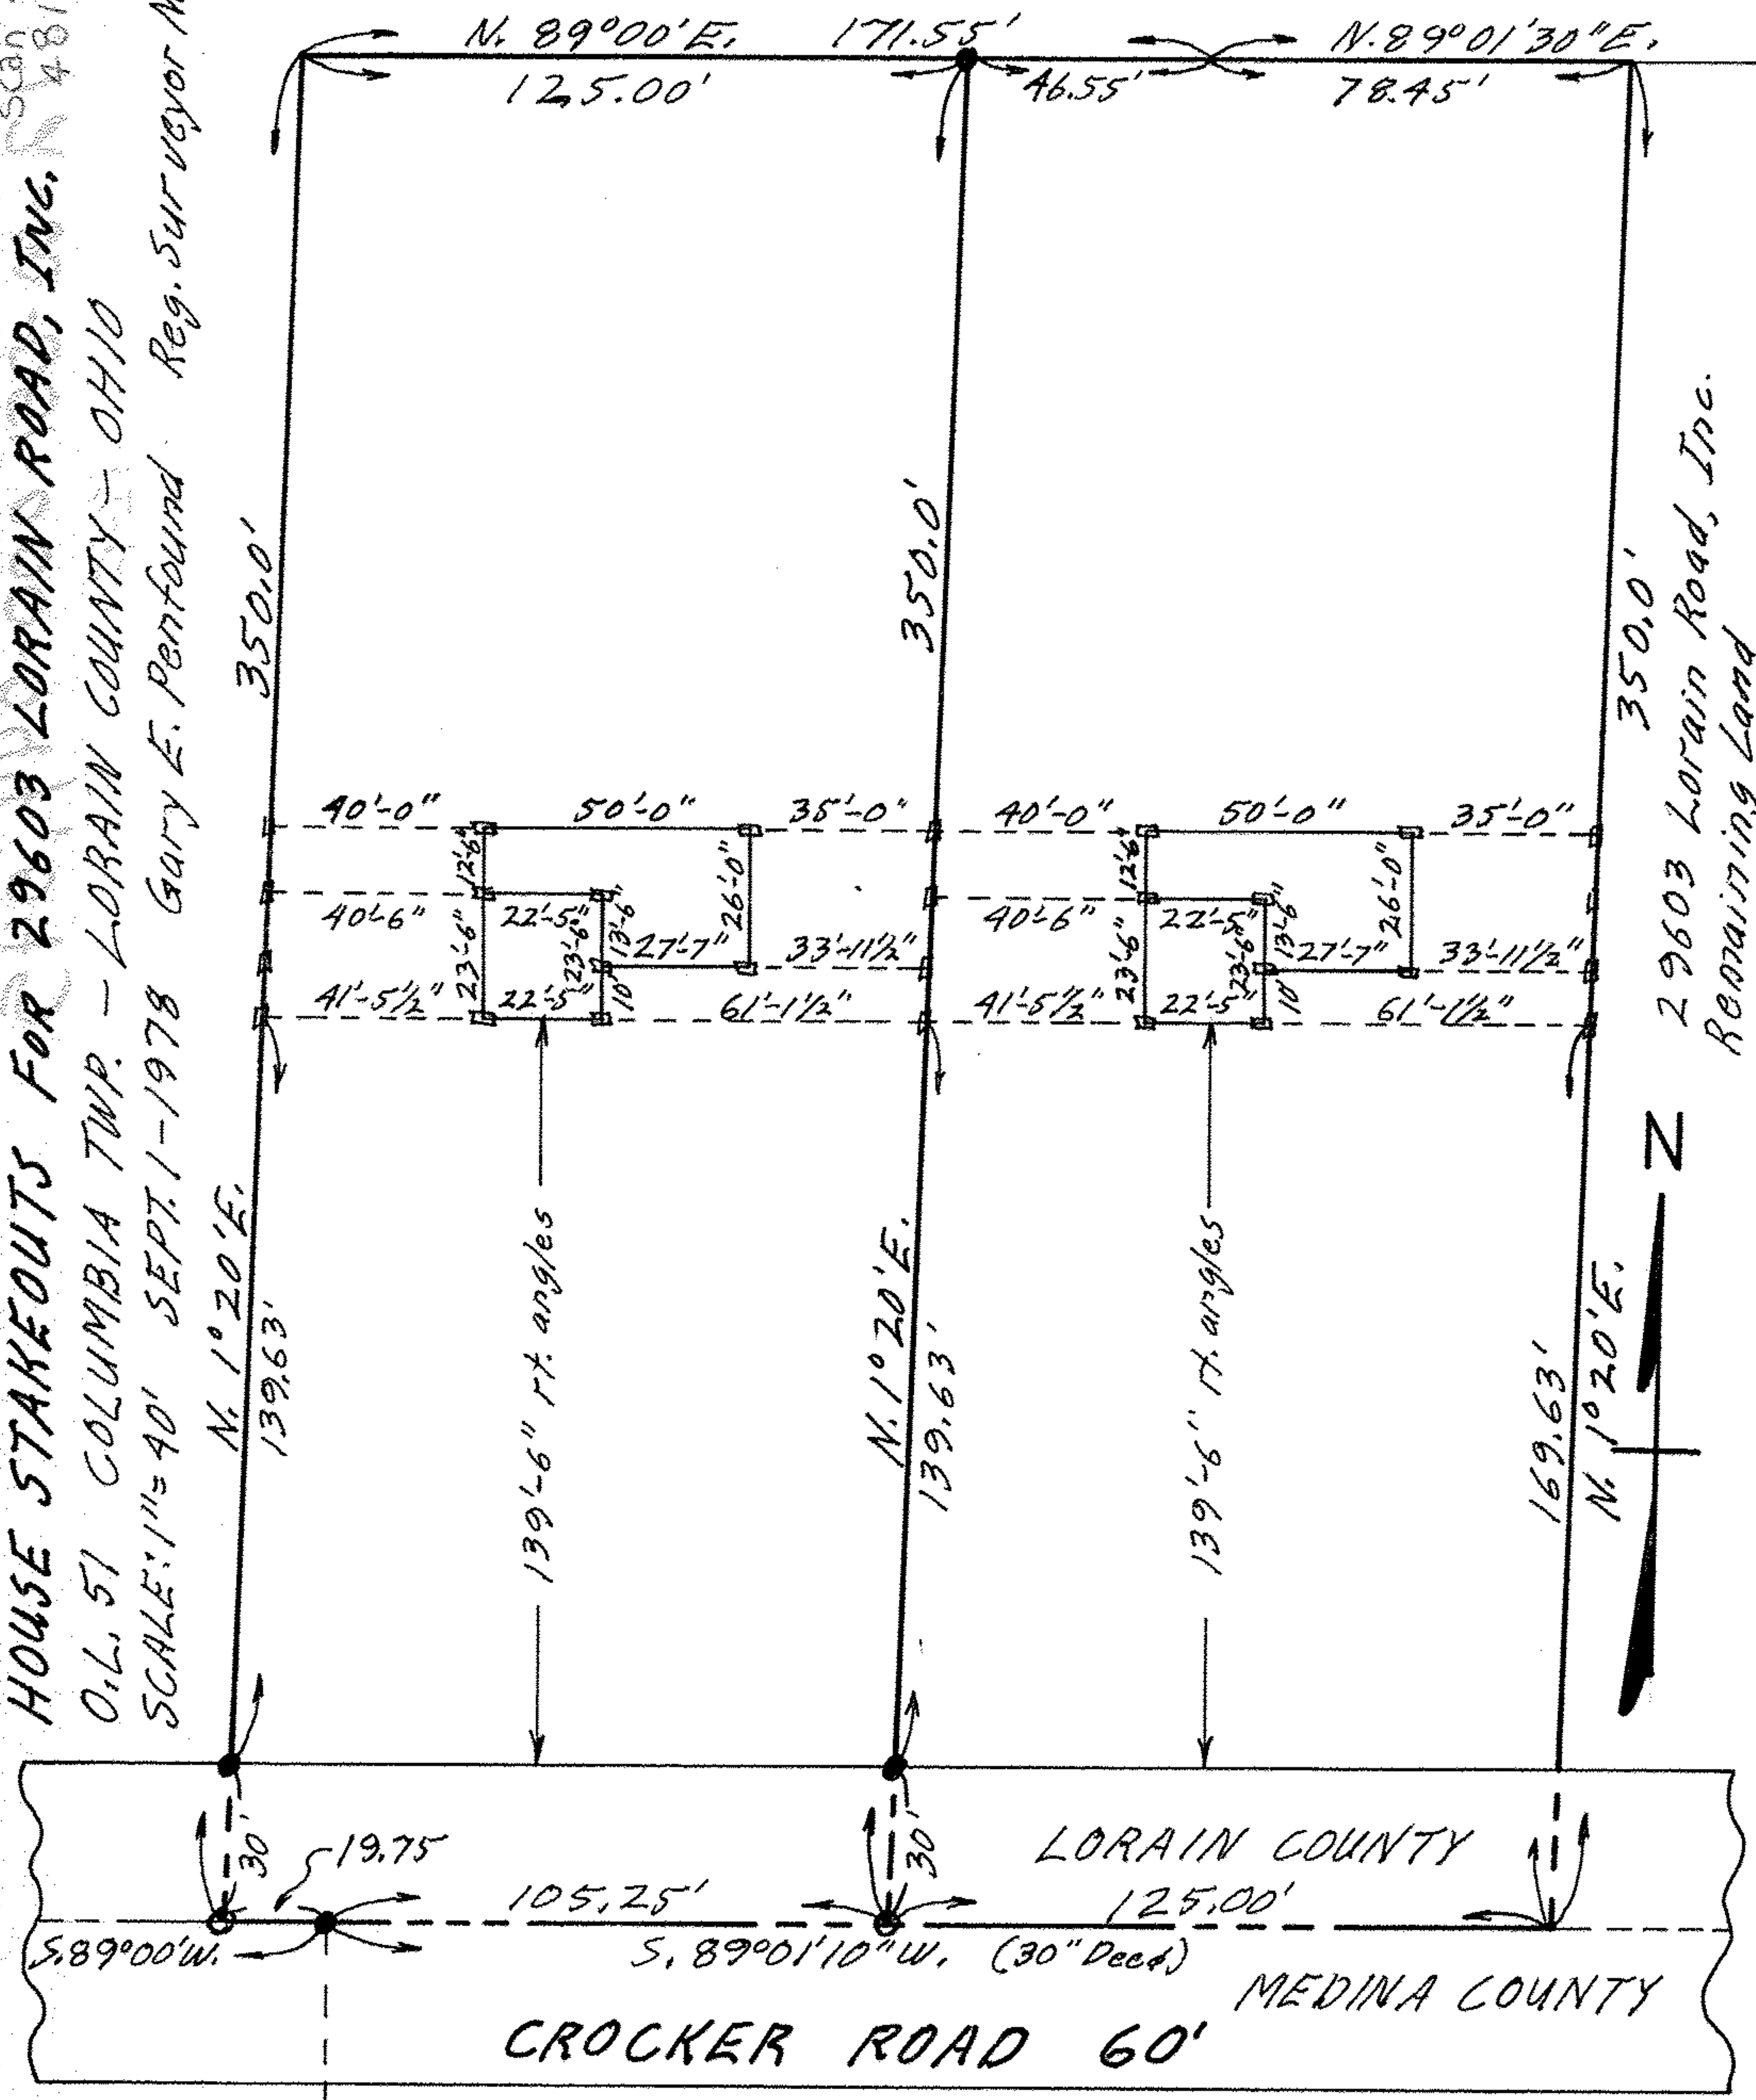 HOUSE STAKEOUTS FOR 29603 LORAIN ROAD, INC.
O.L. 51 COLUMBIA TWP. - LORAIN COUNTY - OHIO
SCALE: 1"=40' SEPT. 1-1978 Gary E. Penfound Reg. Surveyor
Scan
N. 89°00'E. 171.55' N. 89°01'30"E.
125.00' 46.55' 78.45'
350.0' 350.0' 350.0'
29603 Lorain Road, Inc.
Remaining Land
40'-0" 50'-0" 35'-0" 40'-0" 50'-0" 35'-0"
12'-6" 26'-0" 12'-6" 26'-0"
40'-6" 22'-5" 13'-6" 40'-6" 22'-5" 13'-6"
23'-6" 23'-6" 27'-7" 33'-11½" 23'-6" 23'-6" 27'-7" 33'-11½"
41'-5½" 22'-5" 10' 61'-1½" 41'-5½" 22'-5" 10' 61'-1½"
N
N. 1°20'E. N. 1°20'E. N. 1°20'E.
139.63' 139.63' 169.63'
139'-6" rt. angles 139'-6" rt. angles
30' 19.75 30' LORAIN COUNTY
105.25' 125.00'
S. 89°00'W. S. 89°01'10"W. (30" Deed)
MEDINA COUNTY
CROCKER ROAD 60'